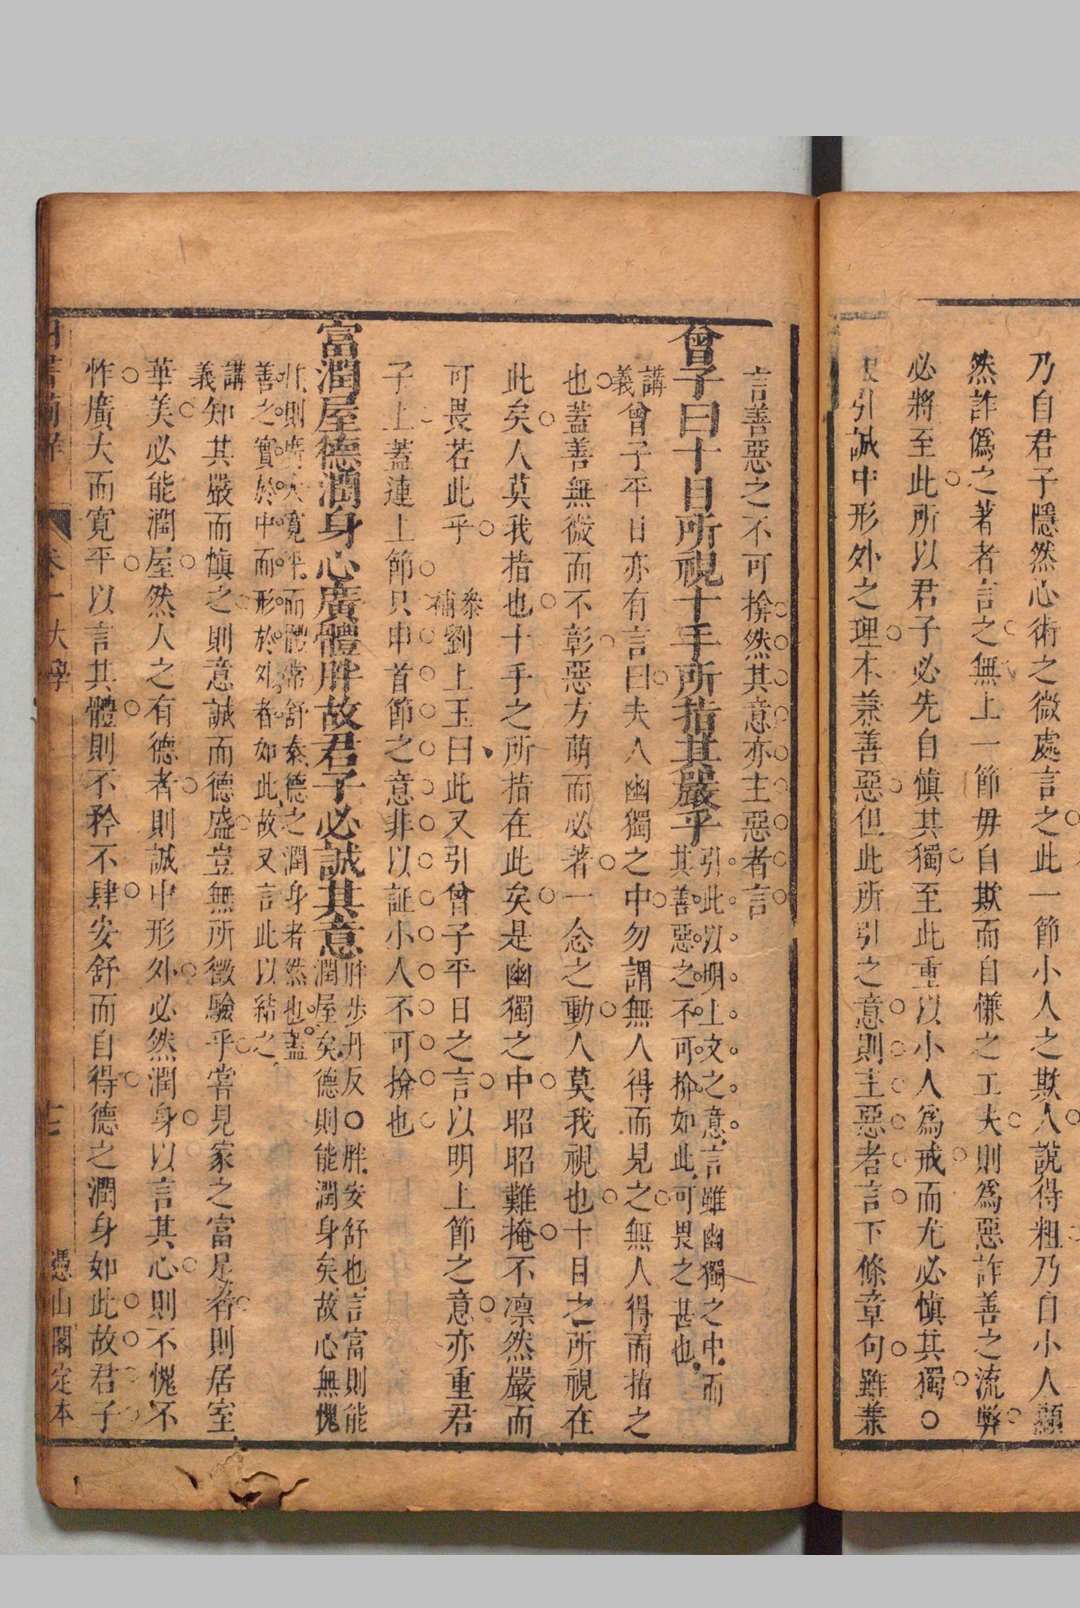 乃自君子隱然心術之微處言之此一節小人之欺人說得粗乃自小人顯
然詐僞之著者言之無上一節毋自欺而自慊之工夫則爲惡詐善之流弊
必將至此所以君子必先自愼其獨至此重以小人爲戒而尤必愼其獨○
引誠中形外之理本兼善惡但此所引之意則主惡者言下條章句雖兼
言善惡之不可揜然其意亦主惡者言
曾子曰十目所視十手所指其嚴乎
引此以明上文之意言雖幽獨之中而
其善惡之不可揜如此可畏之甚也
講義曾子平日亦有言曰夫人幽獨之中勿謂無人得而見之無人得而指之
也蓋善無微而不彰惡方萌而必著一念之動人莫我視也十目之所視在
此矣人莫我指也十手之所指在此矣是幽獨之中昭昭難掩不凜然嚴而
可畏若此乎
參補劉上玉曰此又引曾子平日之言以明上節之意亦重君
子上蓋連上節只申首節之意非以証小人不可揜也
富潤屋德潤身心廣體胖故君子必誠其意
胖步丹反○胖安舒也言富則能
潤屋矣德則能潤身矣故心無愧
怍則廣大寬平而體常舒泰德之潤身者然也蓋
善之實於中而形於外者如此故又言此以結之
講義知其嚴而愼之則意誠而德盛豈無所徵驗乎嘗見家之富足者則居室
華美必能潤屋然人之有德者則誠中形外必然潤身以言其心則不愧不
怍廣大而寬平以言其體則不矜不肆安舒而自得德之潤身如此故君子
卷一 大學
十七
憑山閣定本